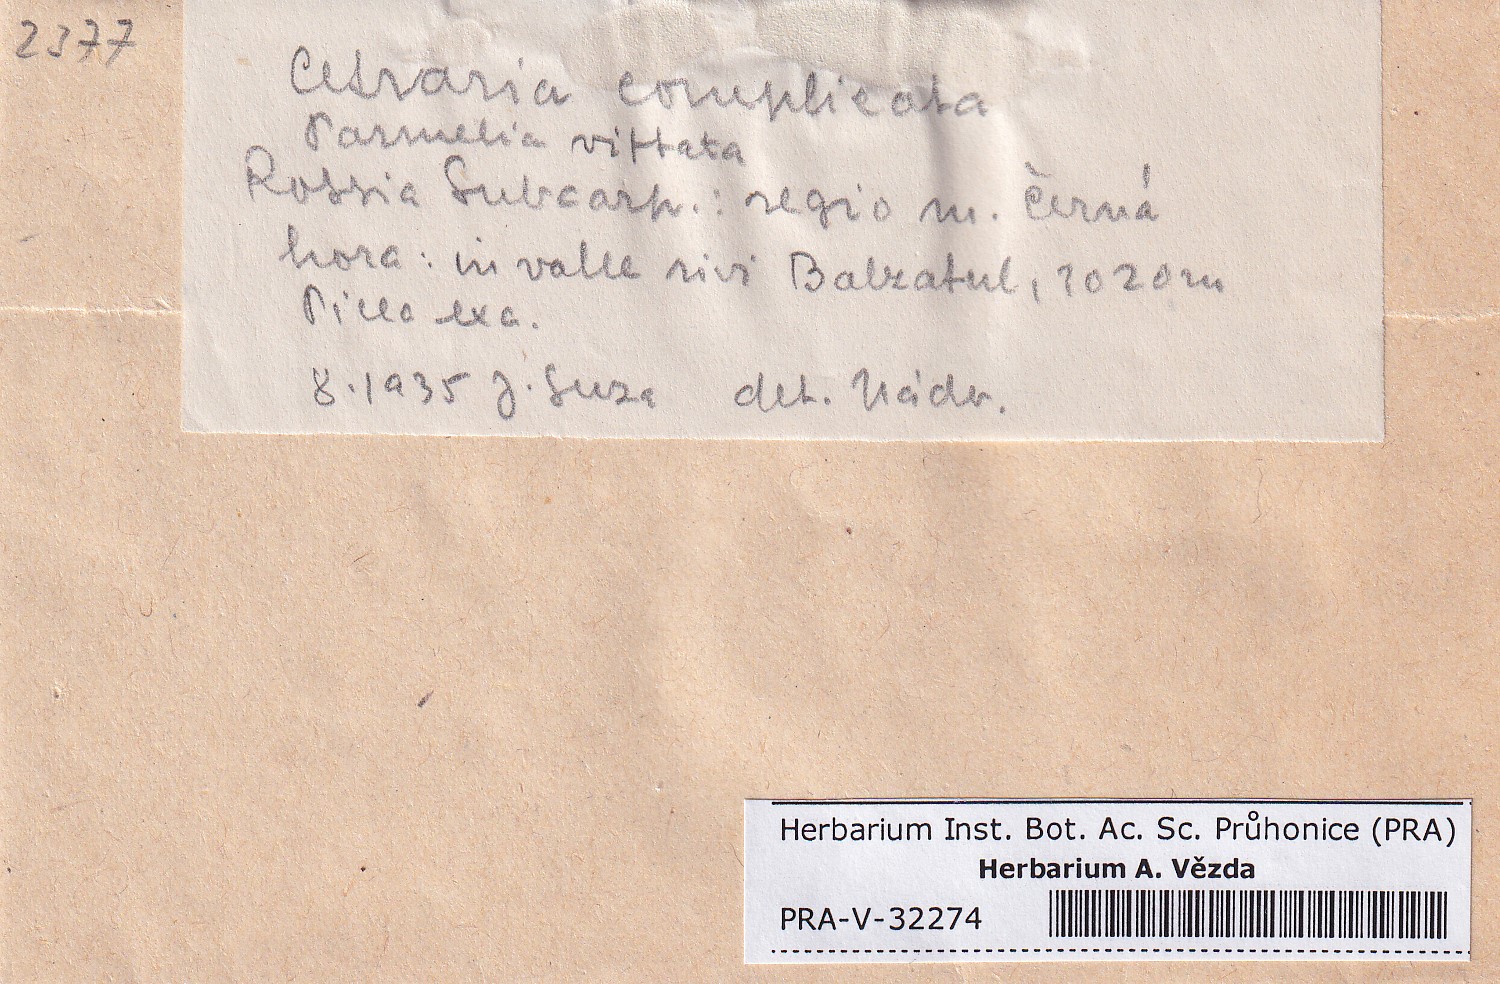 2377
Cetraria complicata
Parmelia vittata
Rossia Subcarp.: regio m. Černá
hora: in valle rivi Balzatul, 1020m
Picea exc.
8.1935 J. Suza det. Nádv.
Herbarium Inst. Bot. Ac. Sc. Průhonice (PRA)
Herbarium A. Vězda
PRA-V-32274